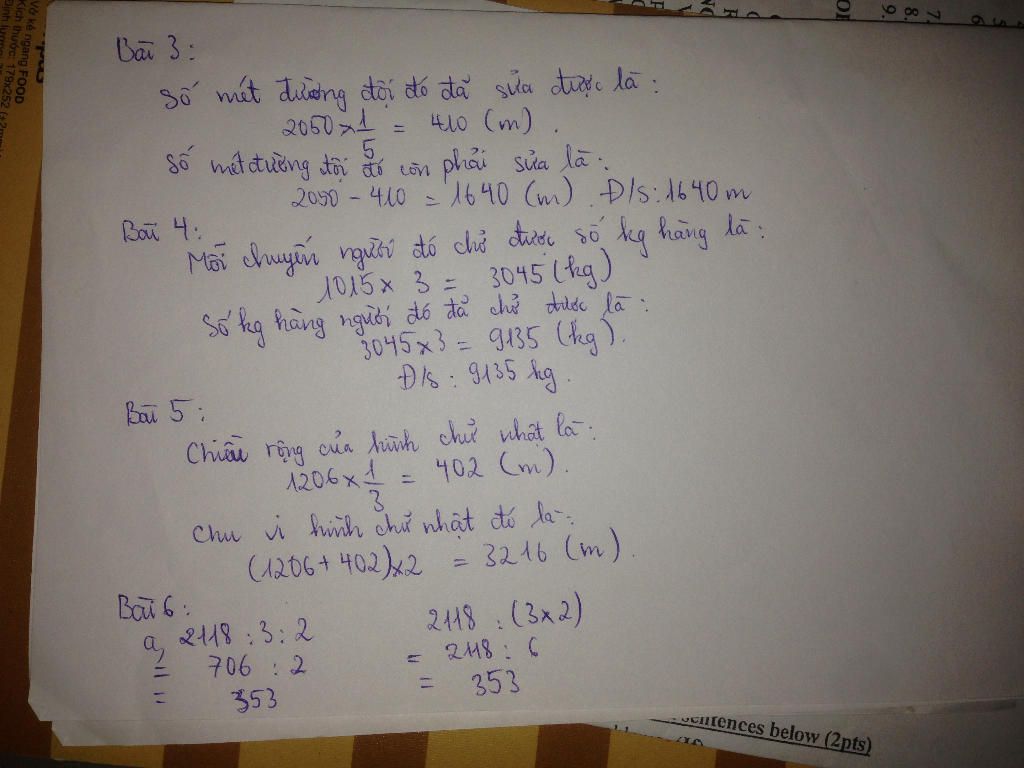 Bài 3:
Số mét đường đội đó đã sửa được là:
2050 × 1/5 = 410 (m).
Số mét đường đội đó còn phải sửa là:
2050 - 410 = 1640 (m). Đ/S: 1640 m
Bài 4:
Mỗi chuyến người đó chở được số kg hàng là:
1015 × 3 = 3045 (kg)
Số kg hàng người đó đã chở được là:
3045 × 3 = 9135 (kg).
Đ/S: 9135 kg.
Bài 5:
Chiều rộng của hình chữ nhật là:
1206 × 1/3 = 402 (m).
Chu vi hình chữ nhật đó là:
(1206 + 402) × 2 = 3216 (m).
Bài 6:
a, 2118 : 3 : 2
= 706 : 2
= 353
2118 : (3 × 2)
= 2118 : 6
= 353
Vở kẻ ngang FOOD
Kích thước: 179x252
sentences below (2pts)
7.
8.
9.